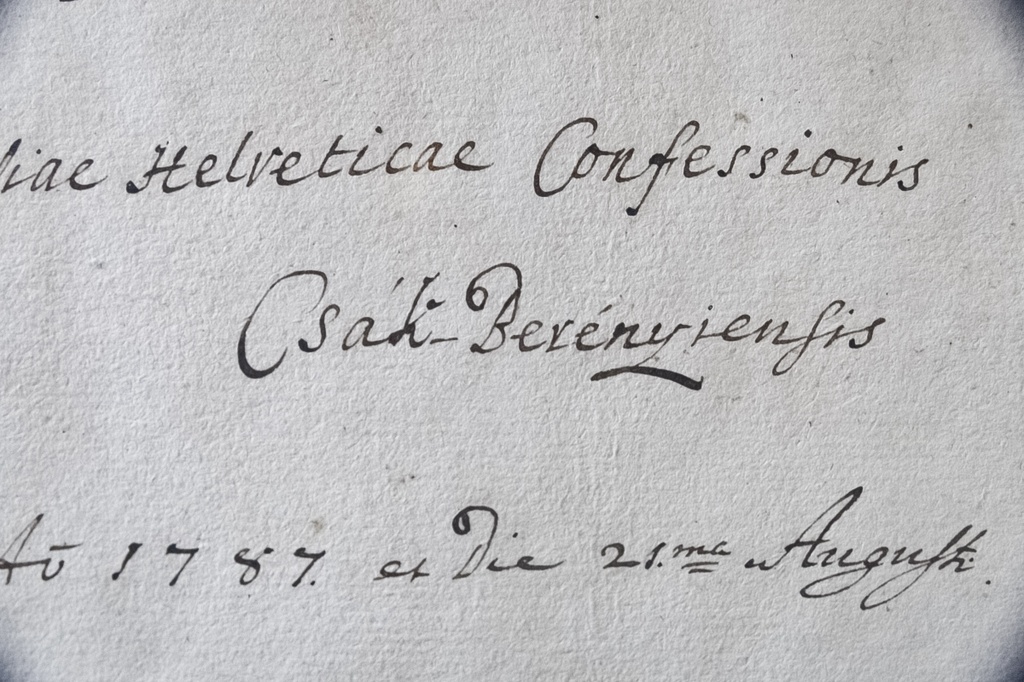 liae Helveticae Confessionis
Csák-Berényiensis
Aō 1787. et Die 21.ma Augusti.